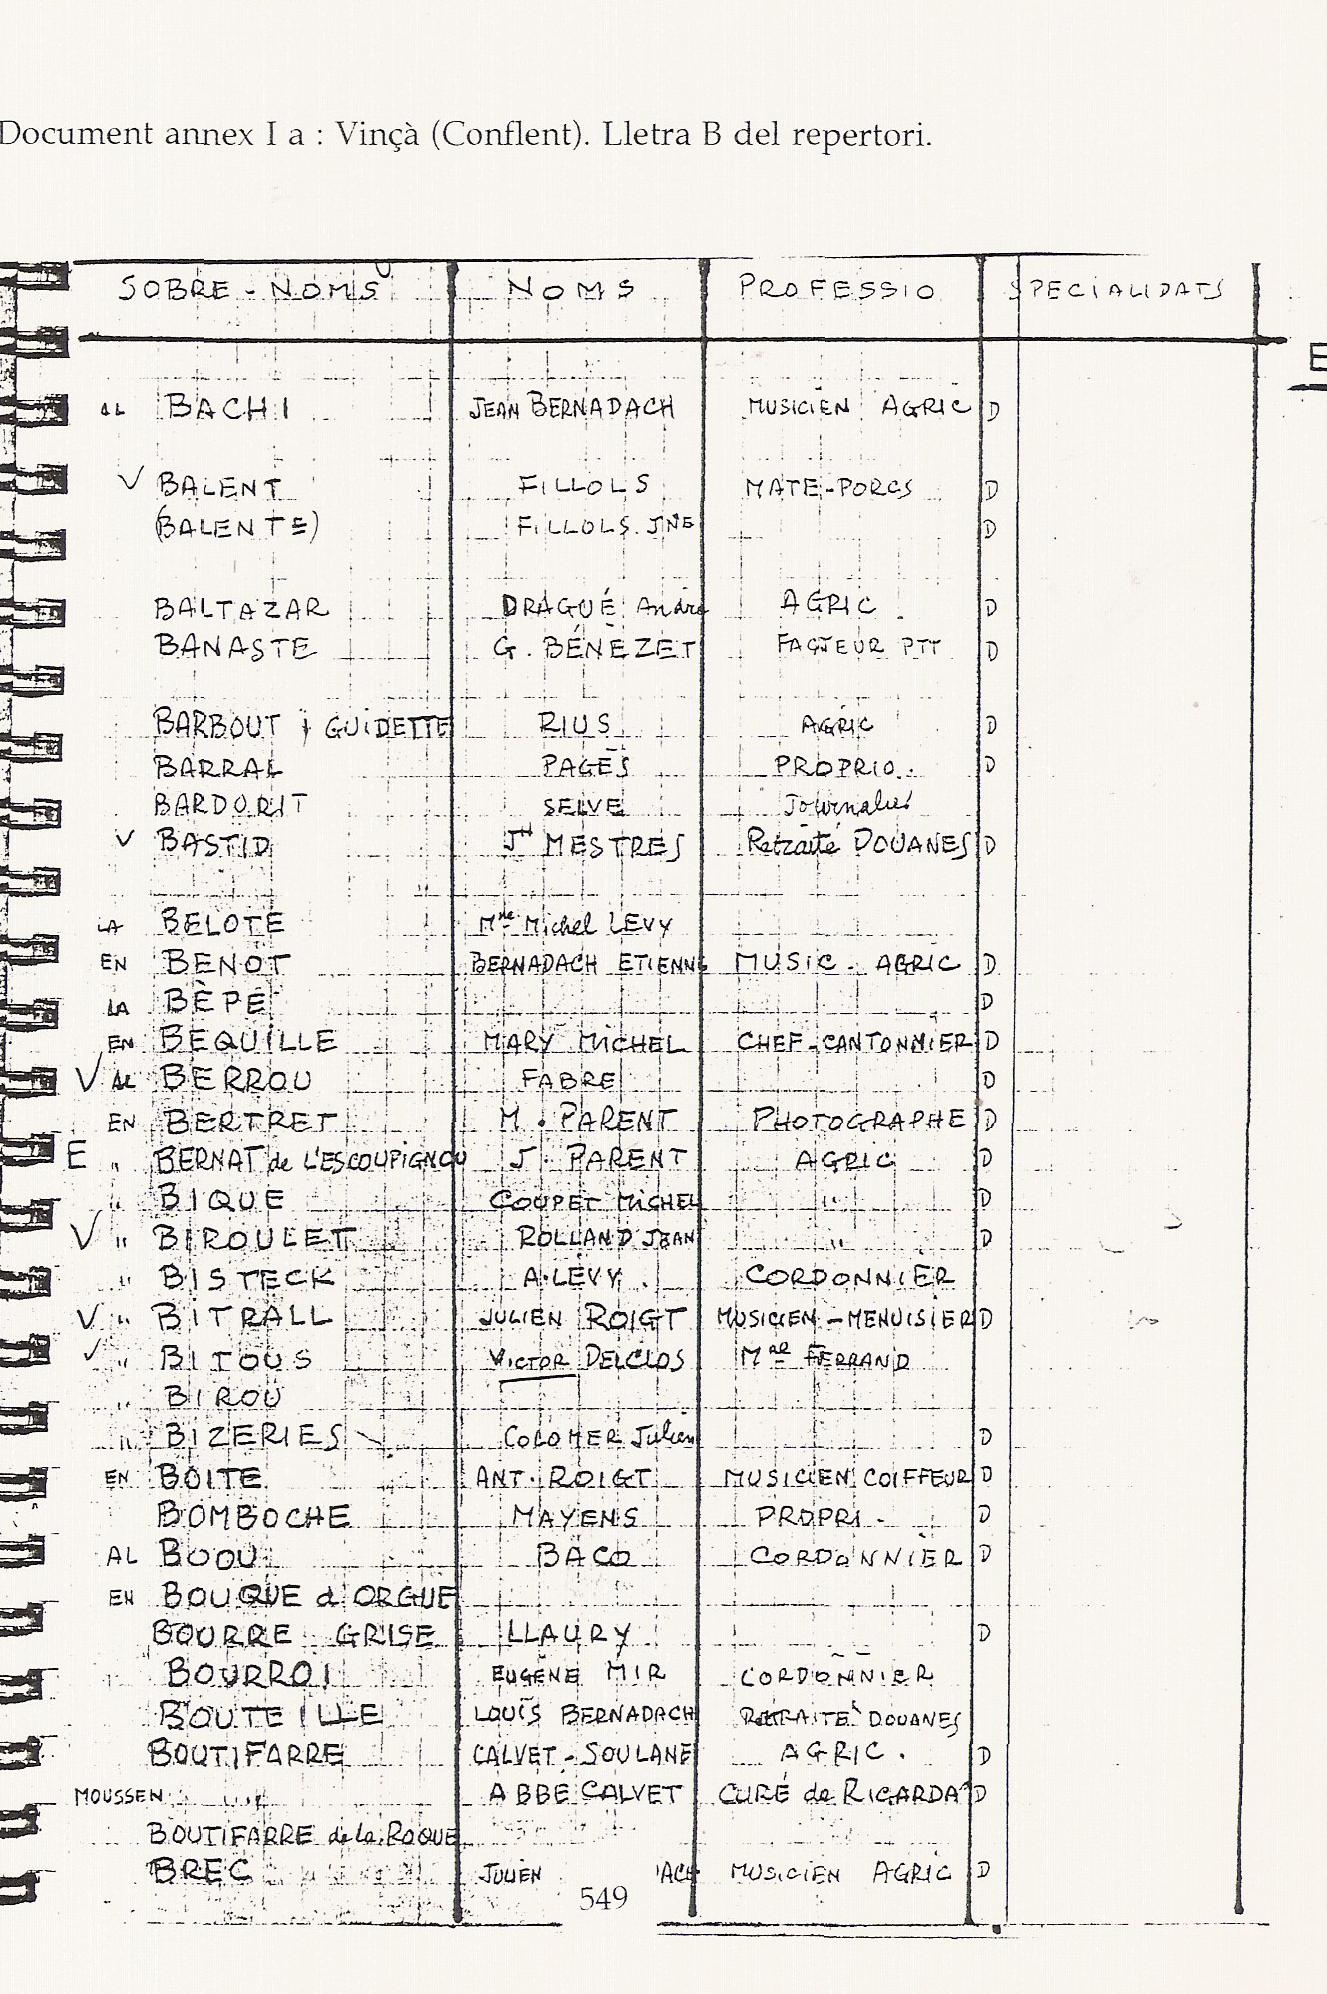 Document annex I a : Vinçà (Conflent). Lletra B del repertori.
SOBRE-NOMS NOMS PROFESSIO SPECIALIDATS
AL BACHI JEAN BERNADACH MUSICIEN AGRIC D
V BALENT FILLOLS MATE-PORCS D
(BALENTE) FILLOLS JNE D
BALTAZAR DRAGUÉ André AGRIC D
BANASTE G. BÉNEZET FACTEUR PTT D
BARBOUT i GUIDETTE RIUS AGRIC D
BARRAL PAGÈS PROPRIO. D
BARDORIT SELVE Journalier
V BASTID JH MESTRES Retraité DOUANES D
LA BELOTE Mme Michel LEVY
EN BENOT BERNADACH ETIENNE MUSIC. AGRIC D
LA BÈPE D
EN BEQUILLE MARY MICHEL CHEF-CANTONNIER D
V AL BERROU FABRE D
EN BERTRET M. PARENT PHOTOGRAPHE D
E " BERNAT de L'ESCOUPIGNOU J. PARENT AGRIC D
" BIQUE COUPET MICHEL " D
V " BIROULET ROLLAND JEAN " D
" BISTECK A. LEVY. CORDONNIER
V " BITRALL JULIEN ROIGT MUSICIEN-MENUISIER D
V " BITOUS VICTOR DELCLOS Mal FERRAND
" BIROU
" BIZERIES COLOMER Julien D
EN BOITE ANT. ROIGT MUSICIEN COIFFEUR D
BOMBOCHE MAYENS PROPRI. D
AL BOOU BACO CORDONNIER D
EN BOUQUE d'ORGUE
BOURRE GRISE LLAURY D
BOURROI EUGÈNE MIR CORDONNIER
BOUTEILLE LOUIS BERNADACH RETRAITÉ DOUANES
BOUTIFARRE CALVET-SOULANE AGRIC. D
MOUSSEN " " ABBÉ CALVET CURÉ de RICARDA D
BOUTIFARRE de la ROQUE
BREC JULIEN ACH MUSICIEN AGRIC D
549